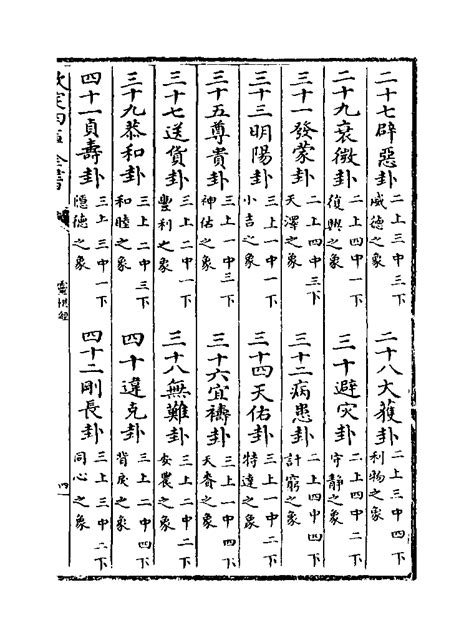 二十七辟惡卦 二上三中三下 威德之象 二十八大獲卦 二上三中四下 利物之象
二十九衰微卦 二上四中一下 復興之象 三十避灾卦 二上四中二下 守靜之象
三十一發蒙卦 二上四中三下 天澤之象 三十二病患卦 二上四中四下 計窮之象
三十三明陽卦 三上一中一下 小吉之象 三十四天佑卦 三上一中二下 特達之象
三十五尊貴卦 三上一中三下 神佑之象 三十六宜禱卦 三上一中四下 天眷之象
三十七送貨卦 三上二中一下 豐利之象 三十八無難卦 三上二中二下 安農之象
三十九恭和卦 三上二中三下 和睦之象 四十違克卦 三上二中四下 背戾之象
四十一貞壽卦 三上三中一下 隱德之象 四十二剛長卦 三上三中二下 同心之象
欽定四庫全書 靈棋經 四